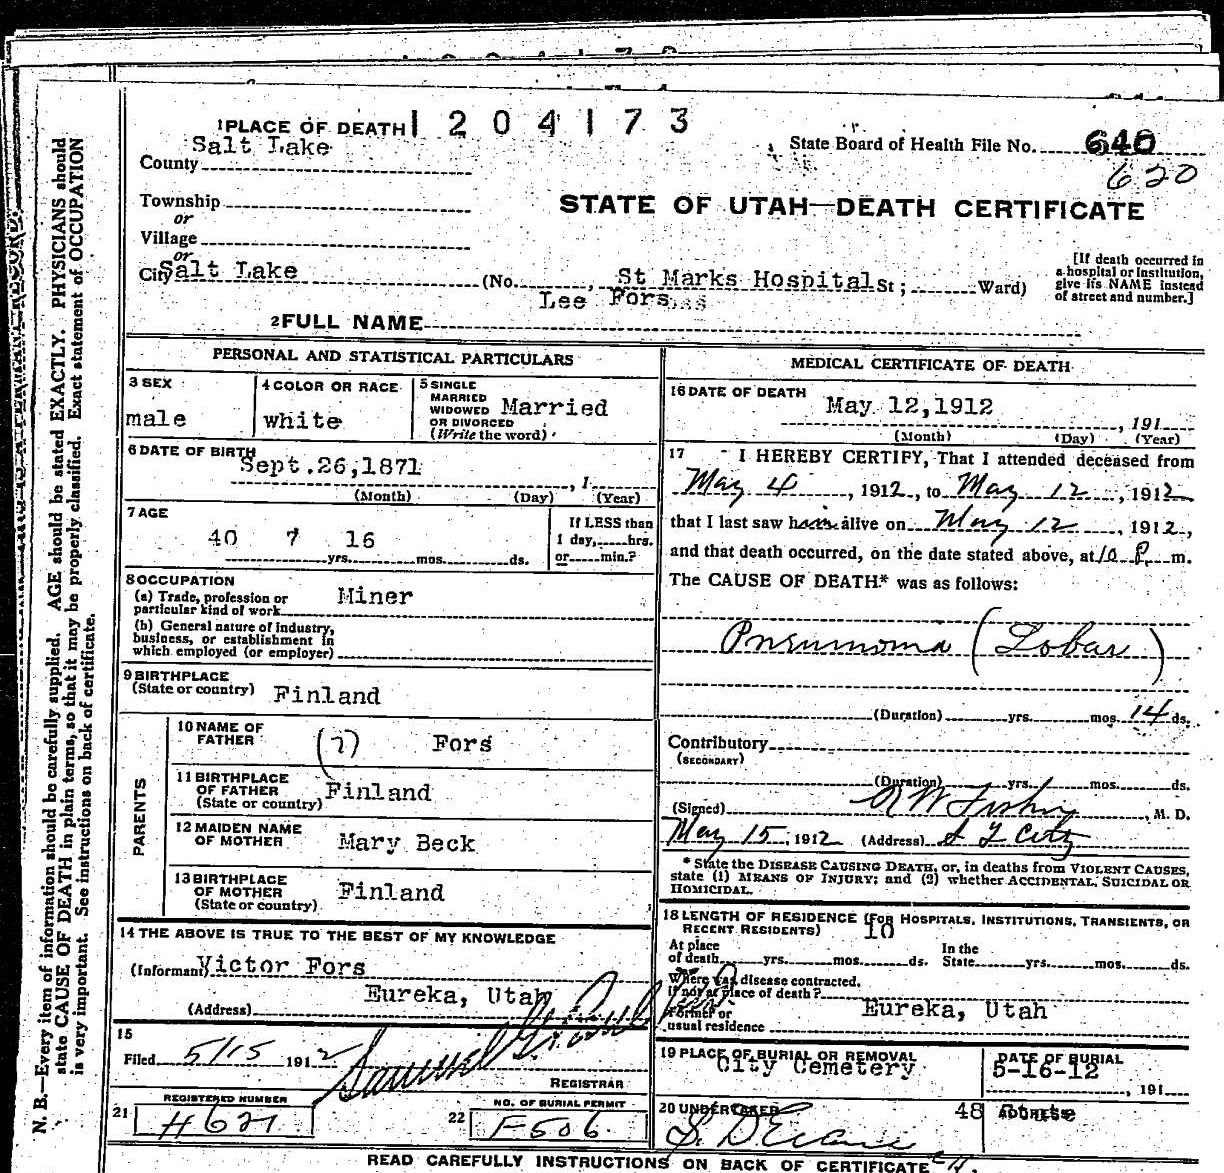 1 PLACE OF DEATH 1204173
Salt Lake
County
State Board of Health File No. 640
620
Township
or
Village
or
City Salt Lake (No. , St Marks Hospital St ; Ward)
STATE OF UTAH—DEATH CERTIFICATE
[If death occurred in
a hospital or institution,
give its NAME instead
of street and number.]
Lee Fors
2 FULL NAME
PERSONAL AND STATISTICAL PARTICULARS
3 SEX
male
4 COLOR OR RACE
white
5 SINGLE
MARRIED
WIDOWED
OR DIVORCED
(Write the word)
Married
6 DATE OF BIRTH
Sept. 26, 1871
, 1
(Month) (Day) (Year)
7 AGE
40 7 16
yrs. mos. ds.
If LESS than
1 day, hrs.
or min.?
8 OCCUPATION
(a) Trade, profession or
particular kind of work Miner
(b) General nature of industry,
business, or establishment in
which employed (or employer)
9 BIRTHPLACE
(State or country) Finland
PARENTS
10 NAME OF
FATHER (?) Fors
11 BIRTHPLACE
OF FATHER
(State or country) Finland
12 MAIDEN NAME
OF MOTHER Mary Beck
13 BIRTHPLACE
OF MOTHER
(State or country) Finland
14 THE ABOVE IS TRUE TO THE BEST OF MY KNOWLEDGE
(Informant) Victor Fors
(Address) Eureka, Utah
15
Filed 5/15 1912
Samuel G.
REGISTRAR
REGISTERED NUMBER
21 H 621
NO. OF BURIAL PERMIT
22 F506
MEDICAL CERTIFICATE OF DEATH
16 DATE OF DEATH
May 12, 1912
, 191
(Month) (Day) (Year)
17 I HEREBY CERTIFY, That I attended deceased from
May 4, 1912, to May 12, 1912
that I last saw him alive on May 12, 1912,
and that death occurred, on the date stated above, at 10 P. m.
The CAUSE OF DEATH* was as follows:
Pneumonia (Lobar)
(Duration) yrs. mos. 14 ds.
Contributory
(SECONDARY)
(Duration) yrs. mos. ds.
(Signed) , M. D.
May 15, 1912 (Address) S L City
* State the DISEASE CAUSING DEATH, or, in deaths from VIOLENT CAUSES,
state (1) MEANS OF INJURY; and (2) whether ACCIDENTAL, SUICIDAL OR
HOMICIDAL.
18 LENGTH OF RESIDENCE (FOR HOSPITALS, INSTITUTIONS, TRANSIENTS, OR
RECENT RESIDENTS) 10
At place
of death yrs. mos. ds.
In the
State yrs. mos. ds.
Where was disease contracted,
if not at place of death?
Former or
usual residence Eureka, Utah
19 PLACE OF BURIAL OR REMOVAL
City Cemetery
DATE OF BURIAL
5-16-12
, 191
20 UNDERTAKER
S. D Evans
ADDRESS
48 State
READ CAREFULLY INSTRUCTIONS ON BACK OF CERTIFICATE
N. B.—Every item of information should be carefully supplied. AGE should be stated EXACTLY. PHYSICIANS should
state CAUSE OF DEATH in plain terms, so that it may be properly classified. Exact statement of OCCUPATION
is very important. See instructions on back of certificate.